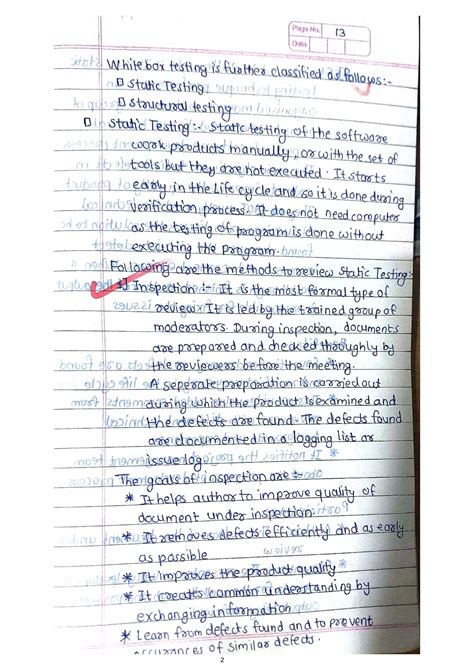 Page No. 13
Date
White box testing is further classified as follows:-
▯ Static Testing
▯ Structural testing
▯ Static Testing:- Static testing of the software
work products manually, or with the set of
tools but they are not executed. It starts
early in the Life cycle and so it is done during
verification process. It does not need computer
as the testing of program is done without
executing the program.
Following are the methods to review Static Testing:-
1] Inspection :- It is the most formal type of
review. It is led by the trained group of
moderators. During inspection, documents
are prepared and checked throughly by
the reviewers before the meeting.
A seperate preparation is carried out
during which the product is examined and
the defects are found. The defects found
are documented in a logging list or
issue log.
The goals of inspection are :-
* It helps author to improve quality of
document under inspection.
* It removes defects efficiently and as early
as possible
* It improves the product quality
* It creates common understanding by
exchanging information
* Learn from defects found and to prevent
occurances of similar defects.
2